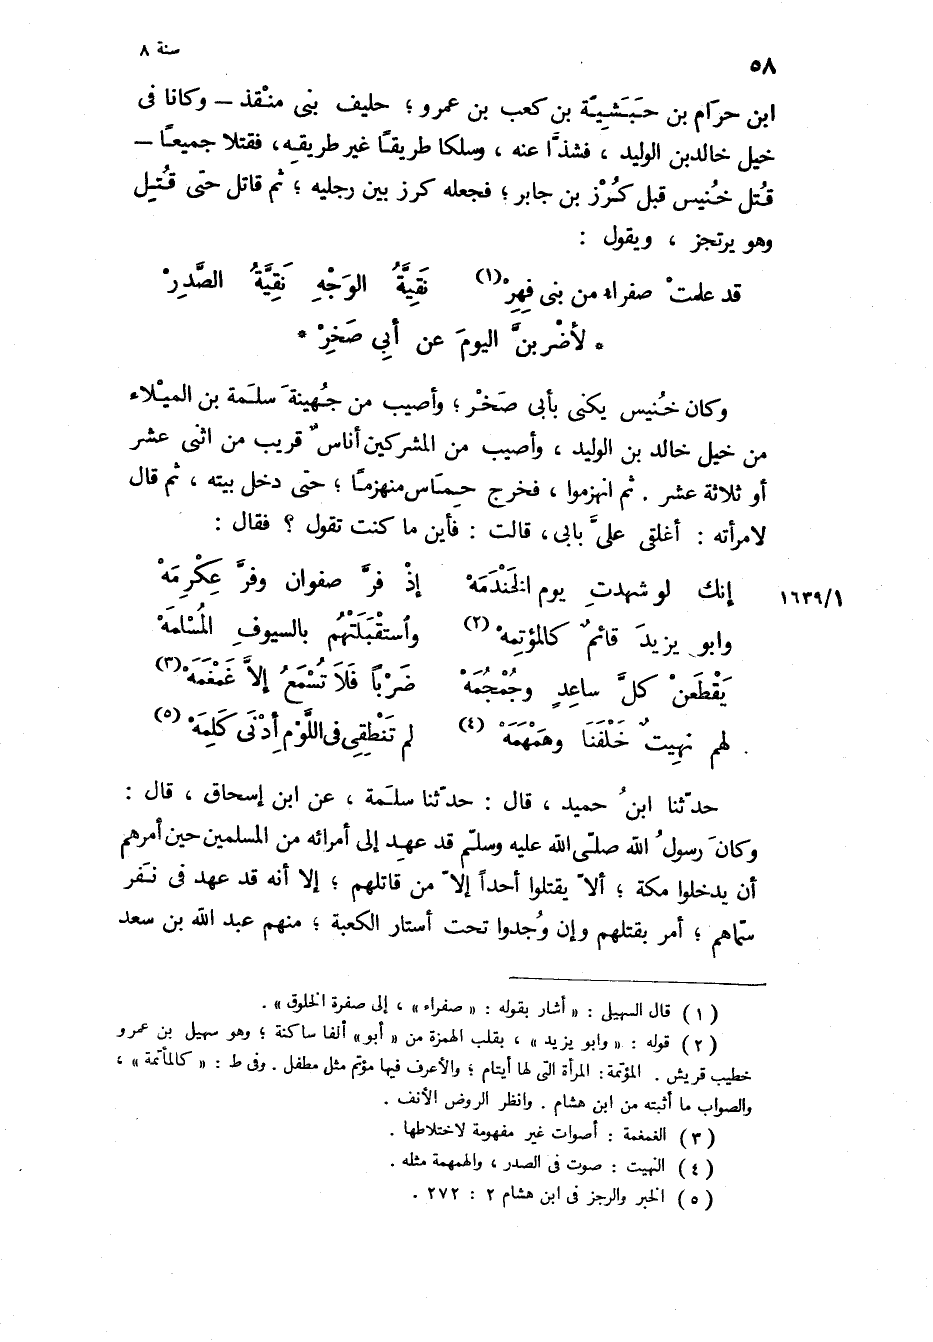 ٥٨
سنة ٨
ابن حرام بن حَبَشِيَّة بن كعب بن عمرو ؛ حليف بنى منْقذ — وكانا فى
خيل خالد بن الوليد ، فشذَّا عنه ، وسلكا طريقًا غير طريقه، فقتلا جميعًا —
قُتل خُنيس قبل كُرْز بن جابر ؛ فجعله كرز بين رجليه ؛ ثم قاتل حتّى قُتيل
وهو يرتجز ، ويقول :
قد علمتْ صفراء من بنى فِهِرْ (١) نَقِيَّةُ الوَجْهِ نَقِيَّةُ الصَّدِرْ
* لأضْربنَّ اليومَ عن أبِي صَخِرْ *
وكان خُنيس يكنى بأبى صَخْر ؛ وأصيب من جُهينةَ سلَمة بن الميْلاء
من خيل خالد بن الوليد ، وأصيب من المشركين أناسٌ قريب من اثنى عشر
أو ثلاثة عشر . ثم انهزموا ، فخرج حِمَاس منهزمًا ؛ حتى دخل بيته ، ثم قال
لامرأته : أغلقى علىَّ بابى، قالت : فأين ما كنت تقول ؟ فقال :
إنك لو شهدتِ يوم الخَنْدَمَهْ إذْ فرَّ صفوان وفرَّ عِكْرِمَهْ
١٦٣٩/١
وابو يزيدَ قائمٌ كالمؤتِمهْ (٢) واُستقْبَلَتْهُم بالسيوفِ المُسْلمَهْ
يَقْطَعنْ كلَّ ساعِدٍ وجُمْجُمَهْ ضَرْبًا فَلَا تُسْمَعُ إلاَّ غَمْغَمَهْ (٣)
لهم نهِيتٌ خَلْفَنَا وهَمْهَمَهْ (٤) لم تَنْطِقِى فى اللَّوْمِ أدْنَى كَلِمَهْ (٥)
حدّثنا ابنُ حميد ، قال : حدّثنا سلَمة ، عن ابن إسحاق ، قال :
وكانَ رسولُ الله صلّى الله عليه وسلّم قد عهِد إلى أمرائه من المسلمين حين أمرهم
أن يدخلوا مكة ؛ ألاّ يقتلوا أحداً إلاّ من قاتلهم ؛ إلا أنه قد عهد فى نَفر
سمّاهم ؛ أمر بقتلهم وإن وُجدوا تحت أستار الكعبة ؛ منهم عبد الله بن سعد
(١) قال السهيلى : « أشار بقوله : « صفراء » ، إلى صفرة الخلوق » .
(٢) قوله : « وابو يزيد » ، بقلب الهمزة من « أبو » ألفا ساكنة ؛ وهو سهيل بن عمرو
خطيب قريش . المؤتمة : المرأة التى لها أيتام ؛ والأعرف فيها مؤتم مثل مطفل . وفى ط : « كالمأتمة » ،
والصواب ما أثبته من ابن هشام . وانظر الروض الأنف .
(٣) الغمغمة : أصوات غير مفهومة لاختلاطها .
(٤) النهيت : صوت فى الصدر ، والهمهمة مثله .
(٥) الخبر والرجز فى ابن هشام ٢ : ٢٧٢ .